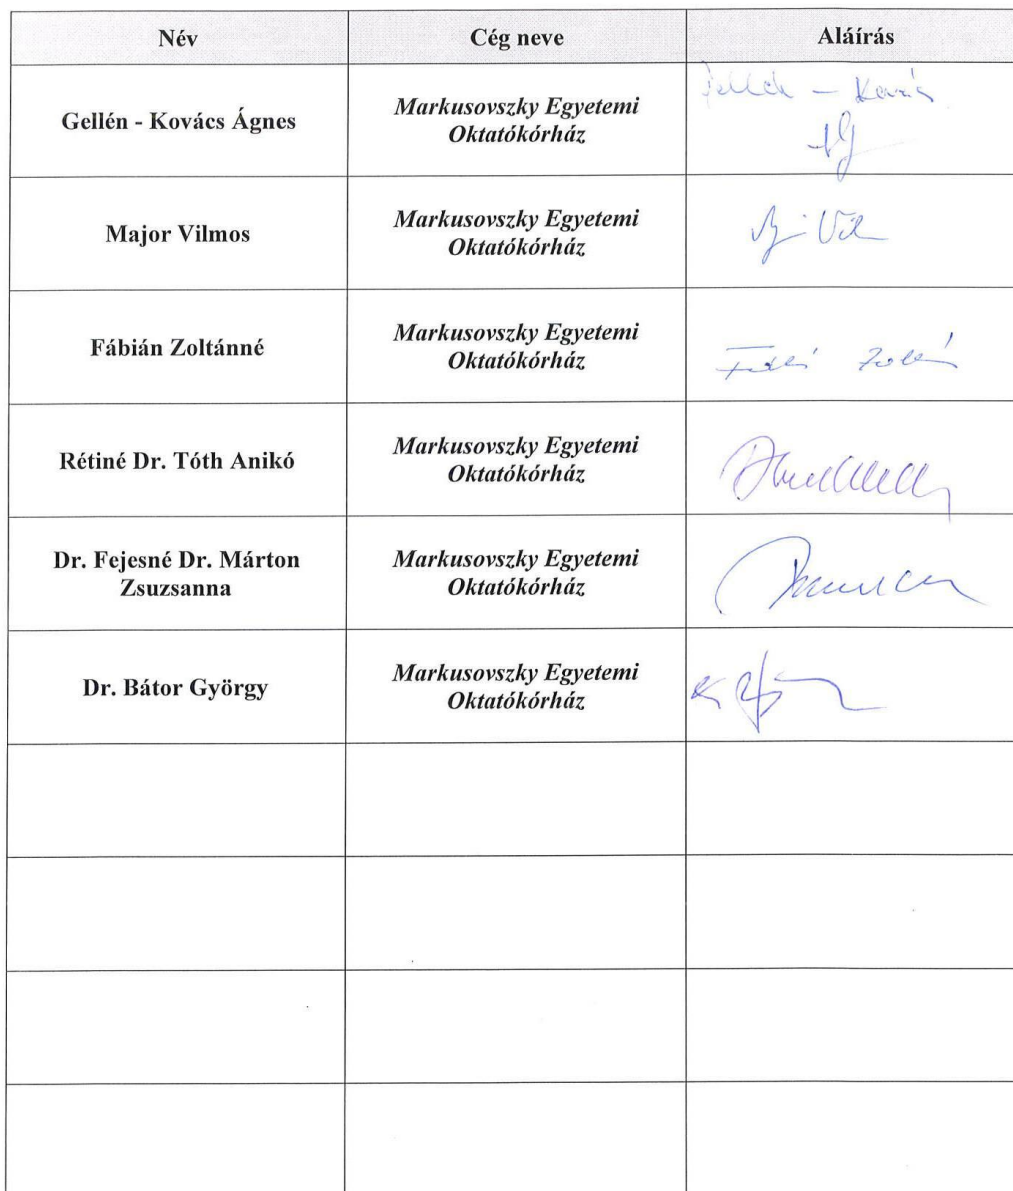 Név Cég neve Aláírás
Gellén - Kovács Ágnes
Markusovszky Egyetemi
Oktatókórház
Major Vilmos
Markusovszky Egyetemi
Oktatókórház
Fábián Zoltánné
Markusovszky Egyetemi
Oktatókórház
Rétiné Dr. Tóth Anikó
Markusovszky Egyetemi
Oktatókórház
Dr. Fejesné Dr. Márton
Zsuzsanna
Markusovszky Egyetemi
Oktatókórház
Dr. Bátor György
Markusovszky Egyetemi
Oktatókórház